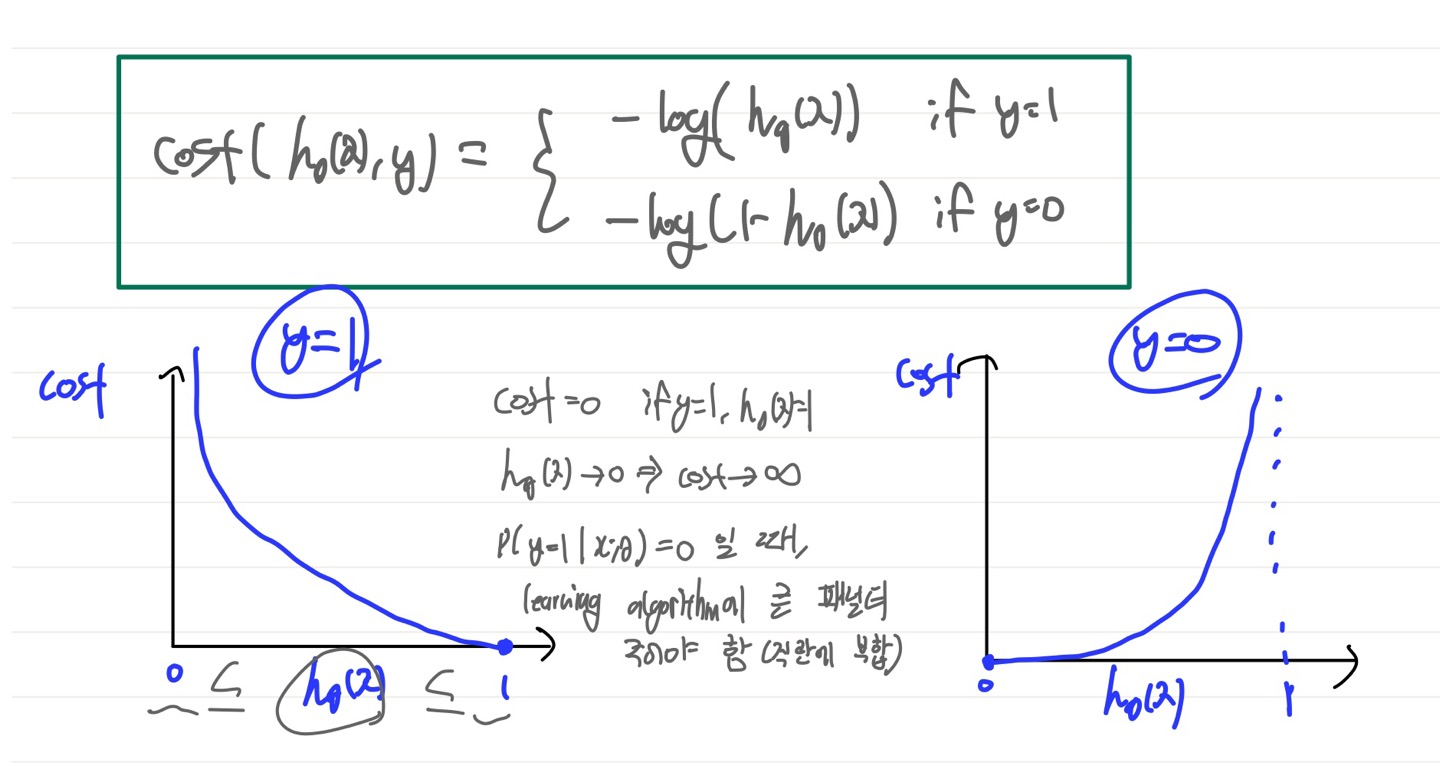 cost(hθ(x), y) = { -log(hθ(x)) if y=1
-log(1-hθ(x)) if y=0
y=1
cost
0 ≤ hθ(x) ≤ 1
cost=0 if y=1, hθ(x)=1
hθ(x)→0 ⇒ cost→∞
P(y=1|x;θ)=0 일 때,
learning algorithm에 큰 패널티
줘야 함 (직관에 부합)
y=0
cost
0 hθ(x) 1